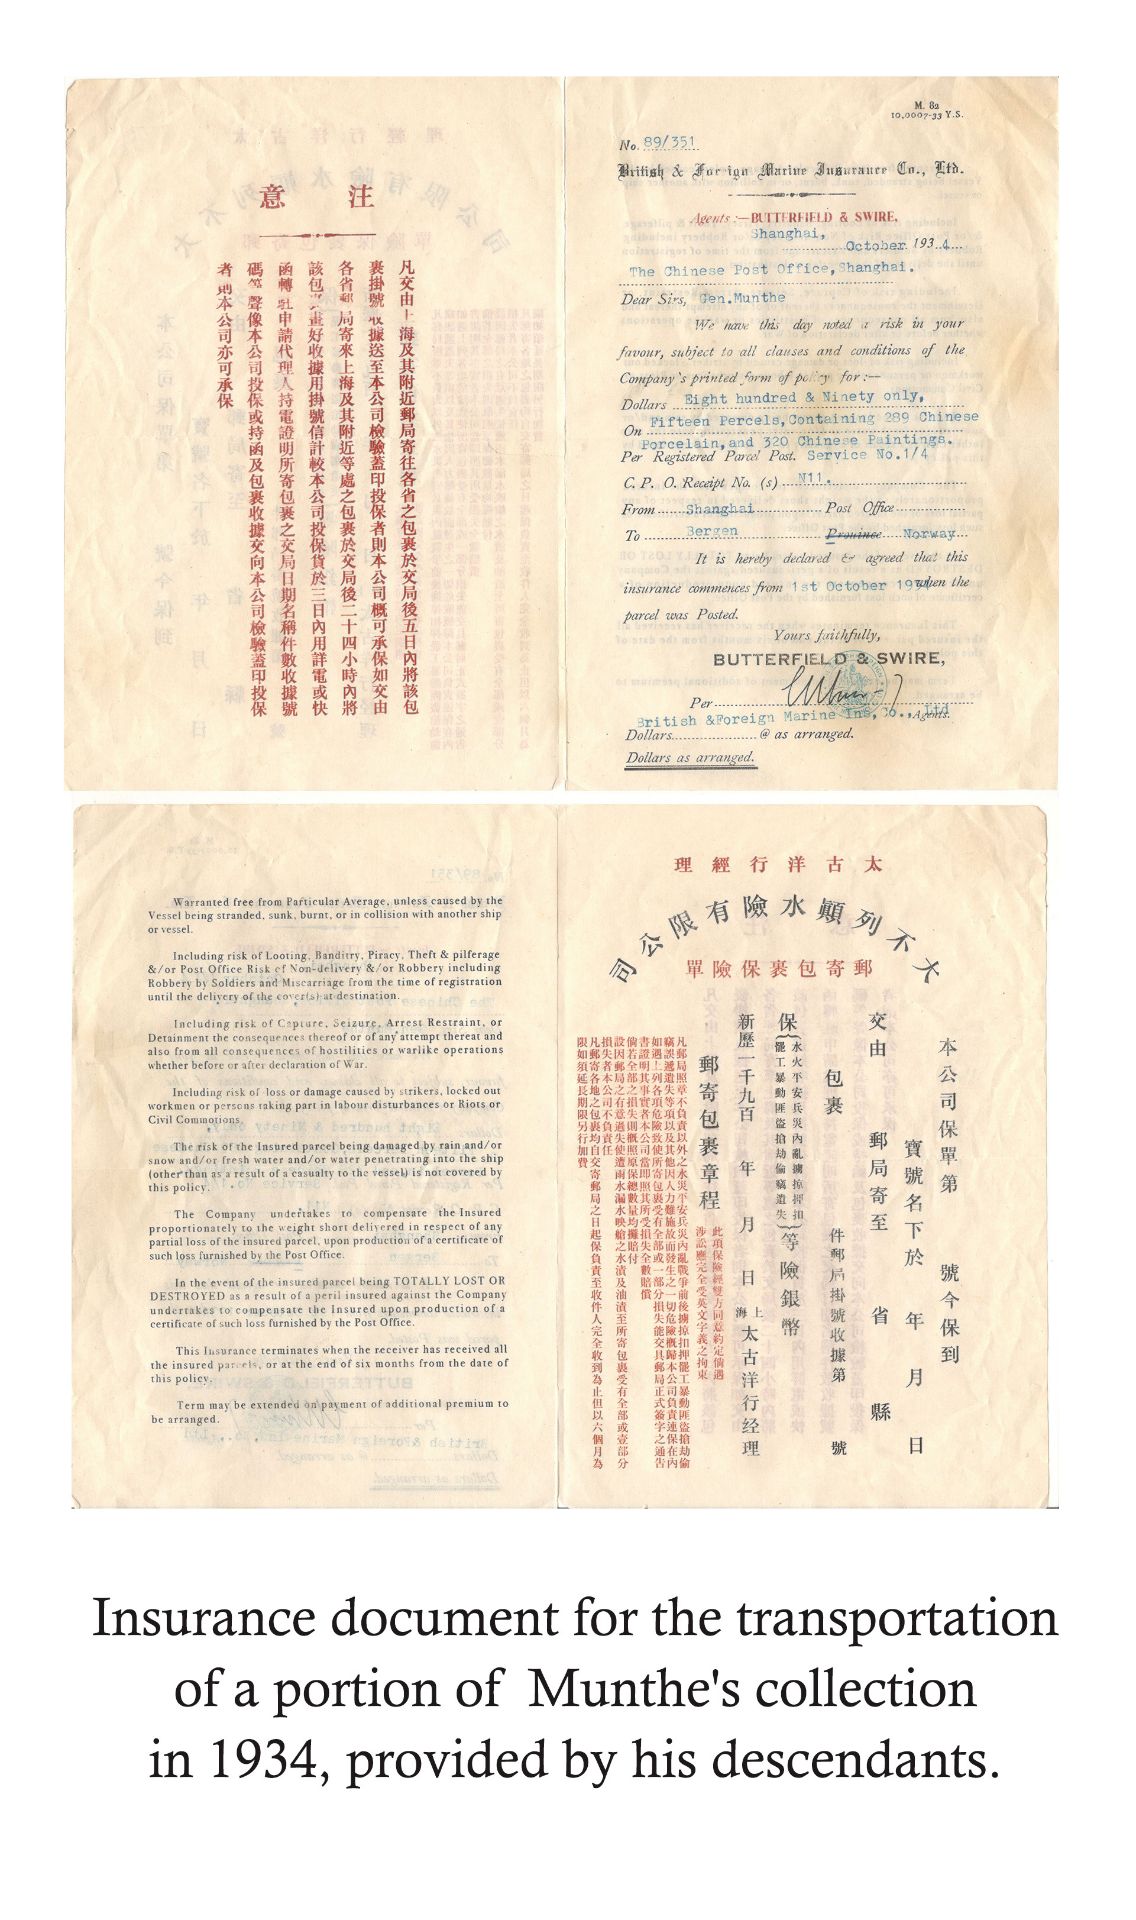 意 注
凡交由上海及其附近郵局寄往各省之包裹於交局後五日內將該包
裹掛號收據送至本公司檢驗蓋印投保者則本公司概可承保如交由
各省郵局寄來上海及其附近等處之包裹於交局後二十四小時內將
該包裹畫好收據用掛號信計較本公司投保貨於三日內用詳電或快
函轉駐申請代理人持電證明所寄包裹之交局日期名稱件數收據號
碼等聲像本公司投保或持函及包裹收據交向本公司檢驗蓋印投保
者則本公司亦可承保
M. 82
10,0007-33 Y.S.
No. 89/351
British & Foreign Marine Insurance Co., Ltd.
Agents :—BUTTERFIELD & SWIRE,
Shanghai,
October 1934
The Chinese Post Office, Shanghai.
Dear Sirs, Gen.Munthe
We have this day noted a risk in your
favour, subject to all clauses and conditions of the
Company's printed form of policy for :—
Dollars Eight hundred & Ninety only,
On Fifteen Percels, Containing 289 Chinese
Porcelain, and 320 Chinese Paintings.
Per Registered Parcel Post. Service No.1/4
C. P. O. Receipt No. (s) N11.
From Shanghai Post Office
To Bergen Province Norway
It is hereby declared & agreed that this
insurance commences from 1st October 1934 when the
parcel was Posted.
Yours faithfully,
BUTTERFIELD & SWIRE,
Per
British &Foreign Marine Ins, Co., Ltd Agents.
Dollars @ as arranged.
Dollars as arranged.
Warranted free from Particular Average, unless caused by the
Vessel being stranded, sunk, burnt, or in collision with another ship
or vessel.
Including risk of Looting, Banditry, Piracy, Theft & pilferage
&/or Post Office Risk of Non-delivery &/or Robbery including
Robbery by Soldiers and Miscarriage from the time of registration
until the delivery of the cover(s) at destination.
Including risk of Capture, Seizure, Arrest Restraint, or
Detainment the consequences thereof or of any attempt thereat and
also from all consequences of hostilities or warlike operations
whether before or after declaration of War.
Including risk of loss or damage caused by strikers, locked out
workmen or persons taking part in labour disturbances or Riots or
Civil Commotions.
The risk of the Insured parcel being damaged by rain and/or
snow and/or fresh water and/or water penetrating into the ship
(other than as a result of a casualty to the vessel) is not covered by
this policy.
The Company undertakes to compensate the Insured
proportionately to the weight short delivered in respect of any
partial loss of the insured parcel, upon production of a certificate of
such loss furnished by the Post Office.
In the event of the insured parcel being TOTALLY LOST OR
DESTROYED as a result of a peril insured against the Company
undertakes to compensate the Insured upon production of a
certificate of such loss furnished by the Post Office.
This Insurance terminates when the receiver has received all
the insured parcels, or at the end of six months from the date of
this policy.
Term may be extended on payment of additional premium to
be arranged.
理經行洋古太
司公限有險水顚列不大
單險保裹包寄郵
本公司保單第 號今保到
寶號名下於 年 月 日
交由 郵局寄至 省 縣
包裹 件郵局掛號收據第 號
保(水火平安兵災內亂擄掠押扣
罷工暴動匪盜搶劫偷竊遺失)等險銀幣
新歷一千九百 年 月 日 上海 太古洋行经理
郵寄包裹章程
此項保險經雙方同意約定倘遇
涉訟應完全受英文字義之拘束
凡郵局照章不負責以外之水災平安兵災內亂戰爭前後擄掠扣押罷工暴動匪盜搶劫偷
竊誤遞遺失等項以及其他因人力難施故而發生之一切危險概歸本公司負責連保在內
如遇上列各項危險致使所寄包裹受有全部或一部分損失能交具郵局正式簽字之通告
書證明其事實者本公司當即照其所受損失全數賠償
倘若全部之損失則概照原保總數量均攤賠付
設因郵局之有意過失使遭雨水漏水映艙之水漬及油漬至所寄包裹受有全部或壹部分
損失者本公司不負責任
凡郵寄各地之包裹均自交寄郵局之日起保負責至收件人完全收到為止但以六個月為
限如須延長期限另行加費
Insurance document for the transportation
of a portion of Munthe's collection
in 1934, provided by his descendants.